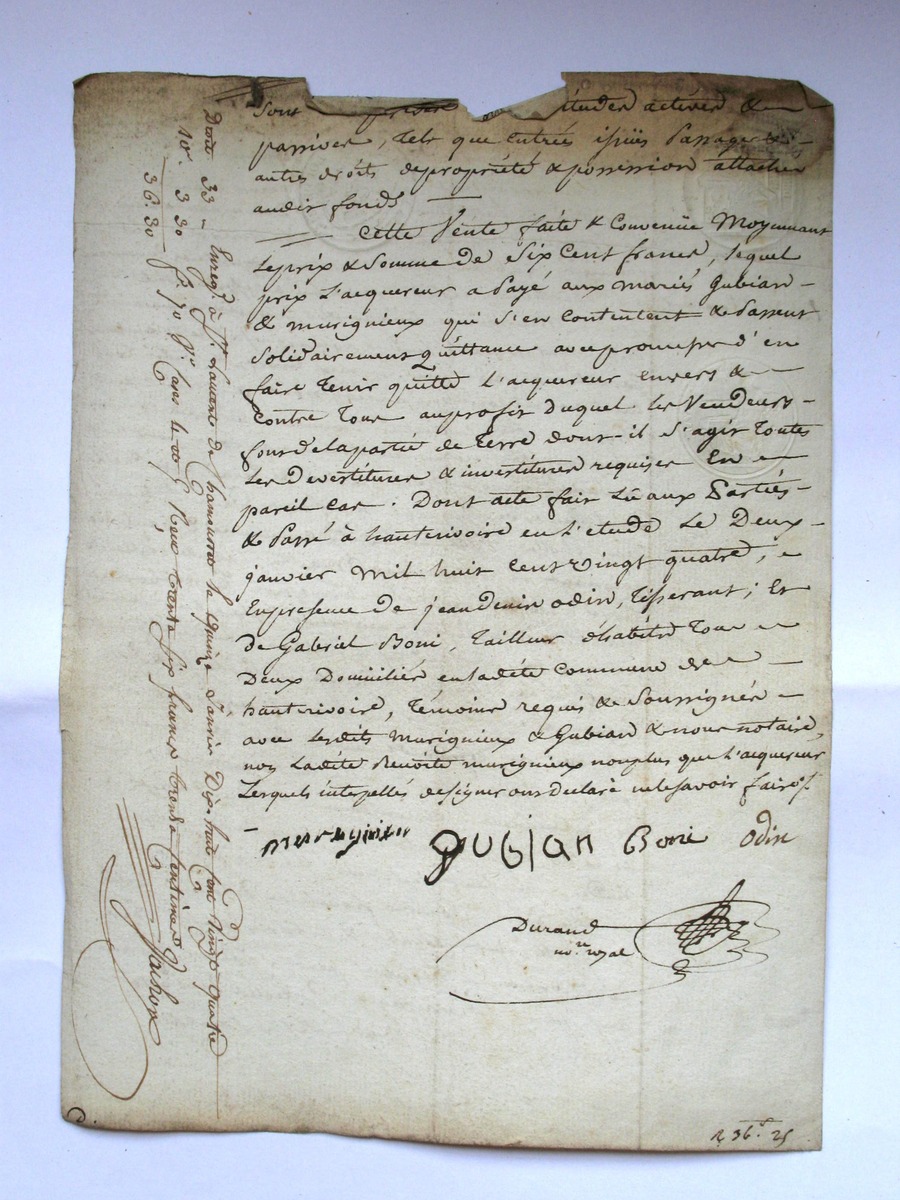 Sont tudes actives &
passives, tels que entrées issües Passages &
autres droits de propriété & possession attachés
audit fonds
Cette Vente faite & Convenüe Moyennant
Le prix & Somme de Six Cent francs, lequel
prix L'acquereur a Payé aux mariés Gubian
& murignieux qui s'en Contentent & Passent
Solidairement quittance avec promesse d'en
faire Tenir quitte L'acquereur Envers &
Contre Tous au profit duquel les Vendeurs
font de la partie de Terre dont il s'agit Toutes
Les Devestitures & investitures requises En
pareil Cas. Dont acte fait Lû aux Parties
& Passé à hauterivoire en l'etude Le Deux
janvier Mil huit Cent Vingt quatre,
En presence de jean denis odin, Tisserant; Et
De Gabriel Boni, Tailleur d'habits Tous
Deux Domiciliés en ladite Commune de
hauterivoire, Témoins requis & Soussignés
avec Lesdits Murignieux & Gubian & nous notaire,
non Ladite Benoite murignieux non plus que L'acquereur
Lesquels interpellés de signer ont declaré ne le savoir faire ./.
murignieu gubian Boni odin
Durand
no.re royal
R 36f 25
Droit 33 - Enreg.é à St Laurent de Chamousset le quinze Janvier Dix huit Cent Vingt quatre
10e 3 30 fo 70 Vo Cases Reçu trente six francs trente Centimes
36.30